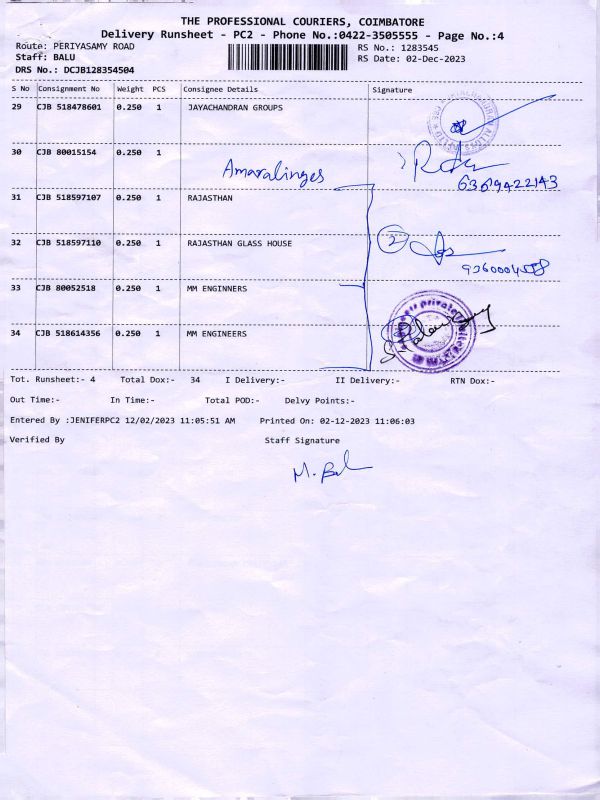 THE PROFESSIONAL COURIERS, COIMBATORE
Delivery Runsheet - PC2 - Phone No.:0422-3505555 - Page No.:4
Route: PERIYASAMY ROAD RS No.: 1283545
Staff: BALU RS Date: 02-Dec-2023
DRS No.: DCJB128354504
S No Consignment No Weight PCS Consignee Details Signature
29 CJB 518478601 0.250 1 JAYACHANDRAN GROUPS
30 CJB 80015154 0.250 1
Amaralinges
6369422143
31 CJB 518597107 0.250 1 RAJASTHAN
32 CJB 518597110 0.250 1 RAJASTHAN GLASS HOUSE
2
33 CJB 80052518 0.250 1 MM ENGINNERS
34 CJB 518614356 0.250 1 MM ENGINEERS
Tot. Runsheet:- 4 Total Dox:- 34 I Delivery:- II Delivery:- RTN Dox:-
Out Time:- In Time:- Total POD:- Delvy Points:-
Entered By :JENIFERPC2 12/02/2023 11:05:51 AM Printed On: 02-12-2023 11:06:03
Verified By Staff Signature